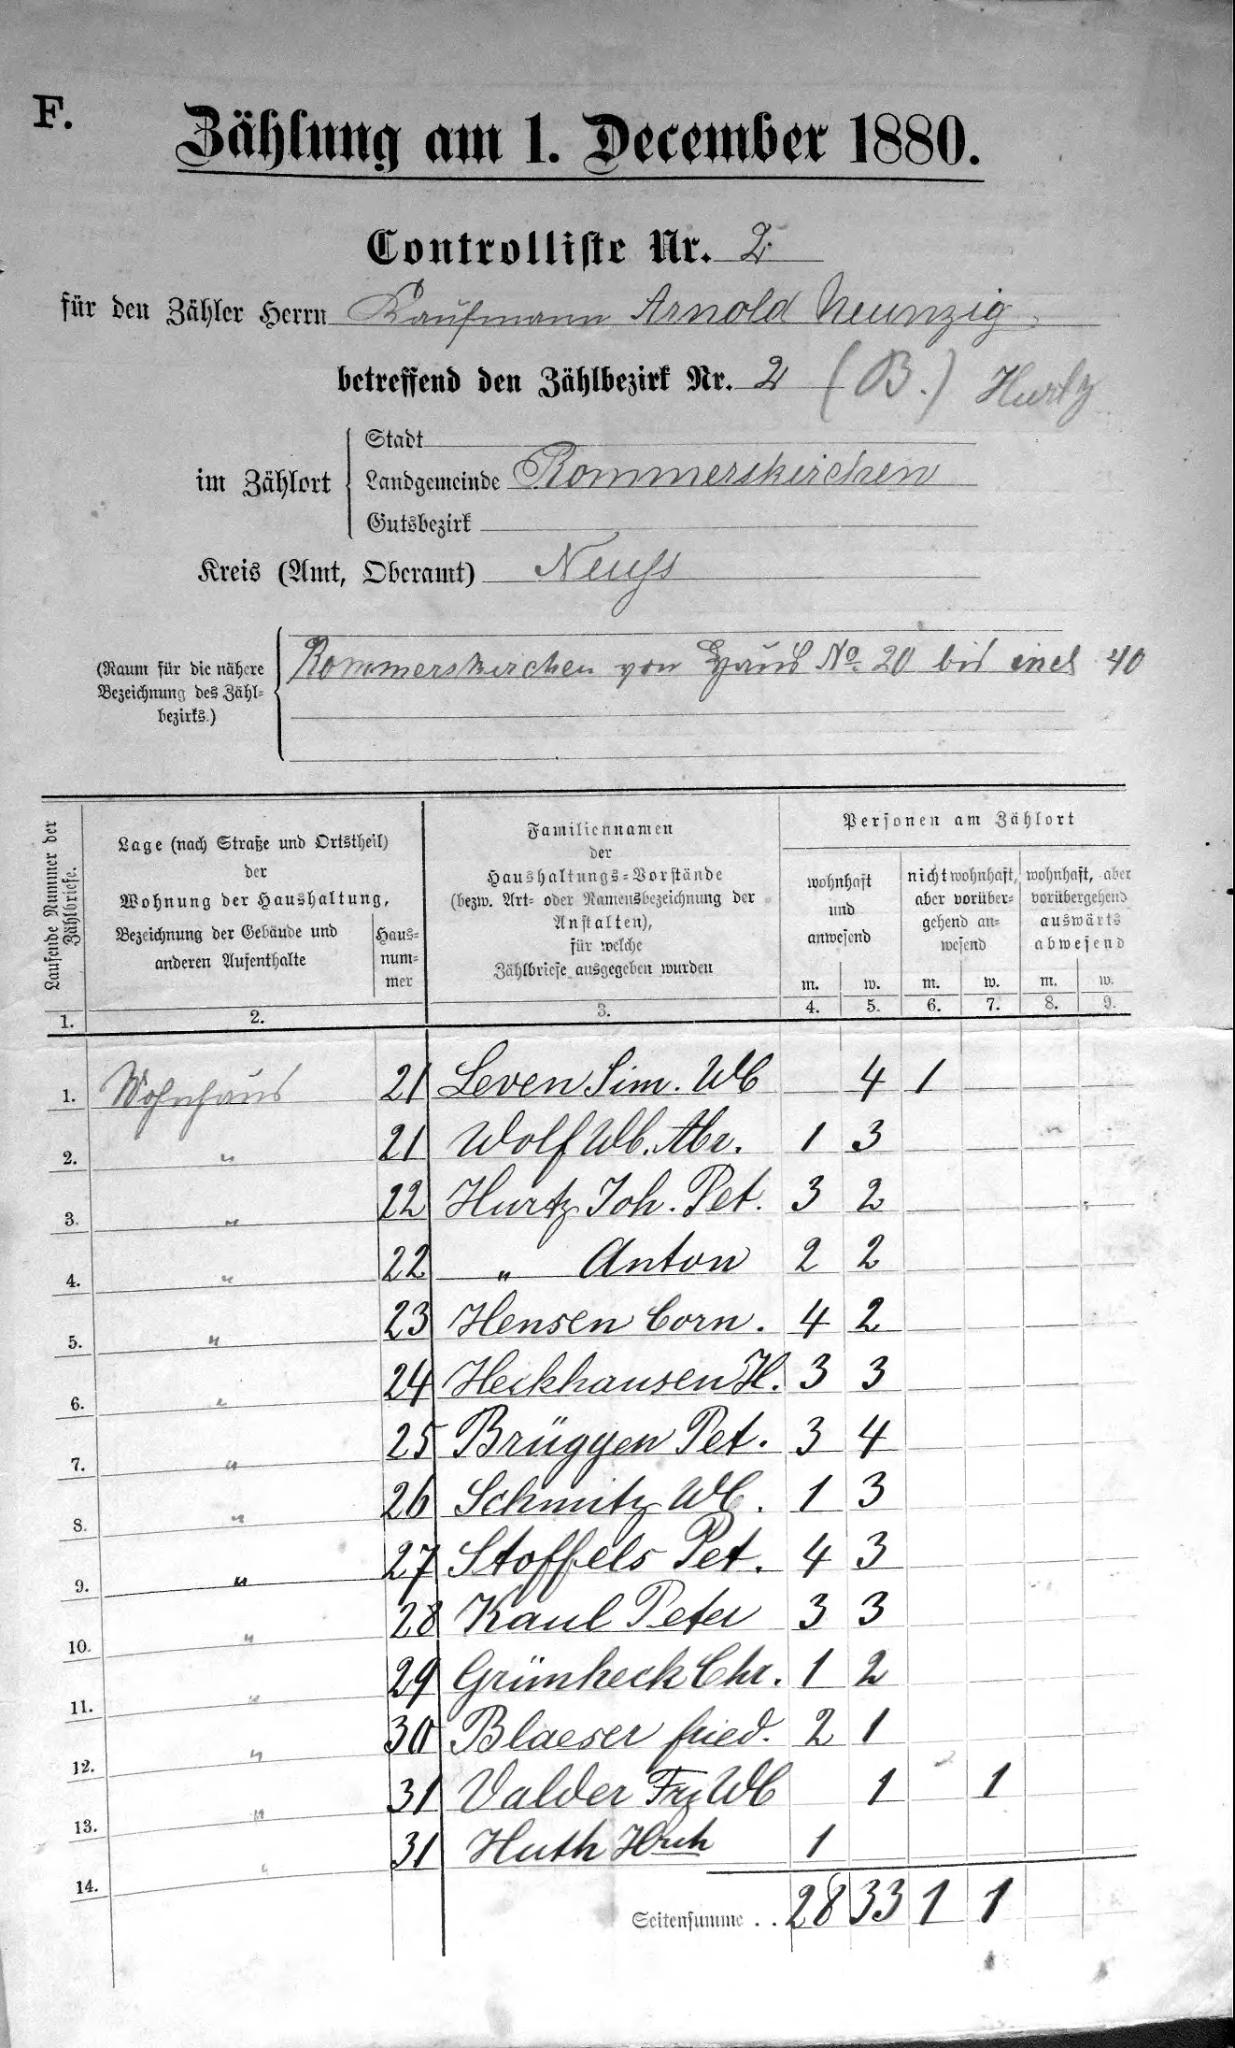 F.
Zählung am 1. December 1880.
Controlliste Nr. 2.
für den Zähler Herrn Kaufmann Arnold Neunzig,
betreffend den Zählbezirk Nr. 2 (B.) Hurtz
im Zählort
Stadt
Landgemeinde Rommerskirchen
Gutsbezirk
Kreis (Amt, Oberamt) Neuss
(Raum für die nähere Bezeichnung des Zähl-bezirks.)
Rommerskirchen von Haus No 20 bis incl 40
Laufende Nummer der Zählbriefe.
Lage (nach Straße und Ortstheil)
der
Wohnung der Haushaltung,
Bezeichnung der Gebäude und
anderen Aufenthalte
Haus-
num-
mer
Familiennamen
der
Haushaltungs-Vorstände
(bezw. Art- oder Namensbezeichnung der
Anstalten),
für welche
Zählbriefe ausgegeben wurden
Personen am Zählort
wohnhaft
und
anwesend
nicht wohnhaft,
aber vorüber-
gehend an-
wesend
wohnhaft, aber
vorübergehend
auswärts
abwesend
m. w. m. w. m. w.
1. 2. 3. 4. 5. 6. 7. 8. 9.
1. Wohnhaus 21 Leven Sim. Wb 4 1
2. " 21 Wolf Wb. Abr. 1 3
3. " 22 Hurtz Joh. Pet. 3 2
4. " 22 " Anton 2 2
5. " 23 Hensen Corn. 4 2
6. " 24 Heckhausen H. 3 3
7. " 25 Brüggen Pet. 3 4
8. " 26 Schmitz Wb. 1 3
9. " 27 Stoffels Pet. 4 3
10. " 28 Kaul Peter 3 3
11. " 29 Grümheck Chr. 1 2
12. " 30 Blaeser fried. 2 1
13. " 31 Valder Frz Wb 1 1
14. " 31 Huth Hrch 1
Seitensumme . . 28 33 1 1